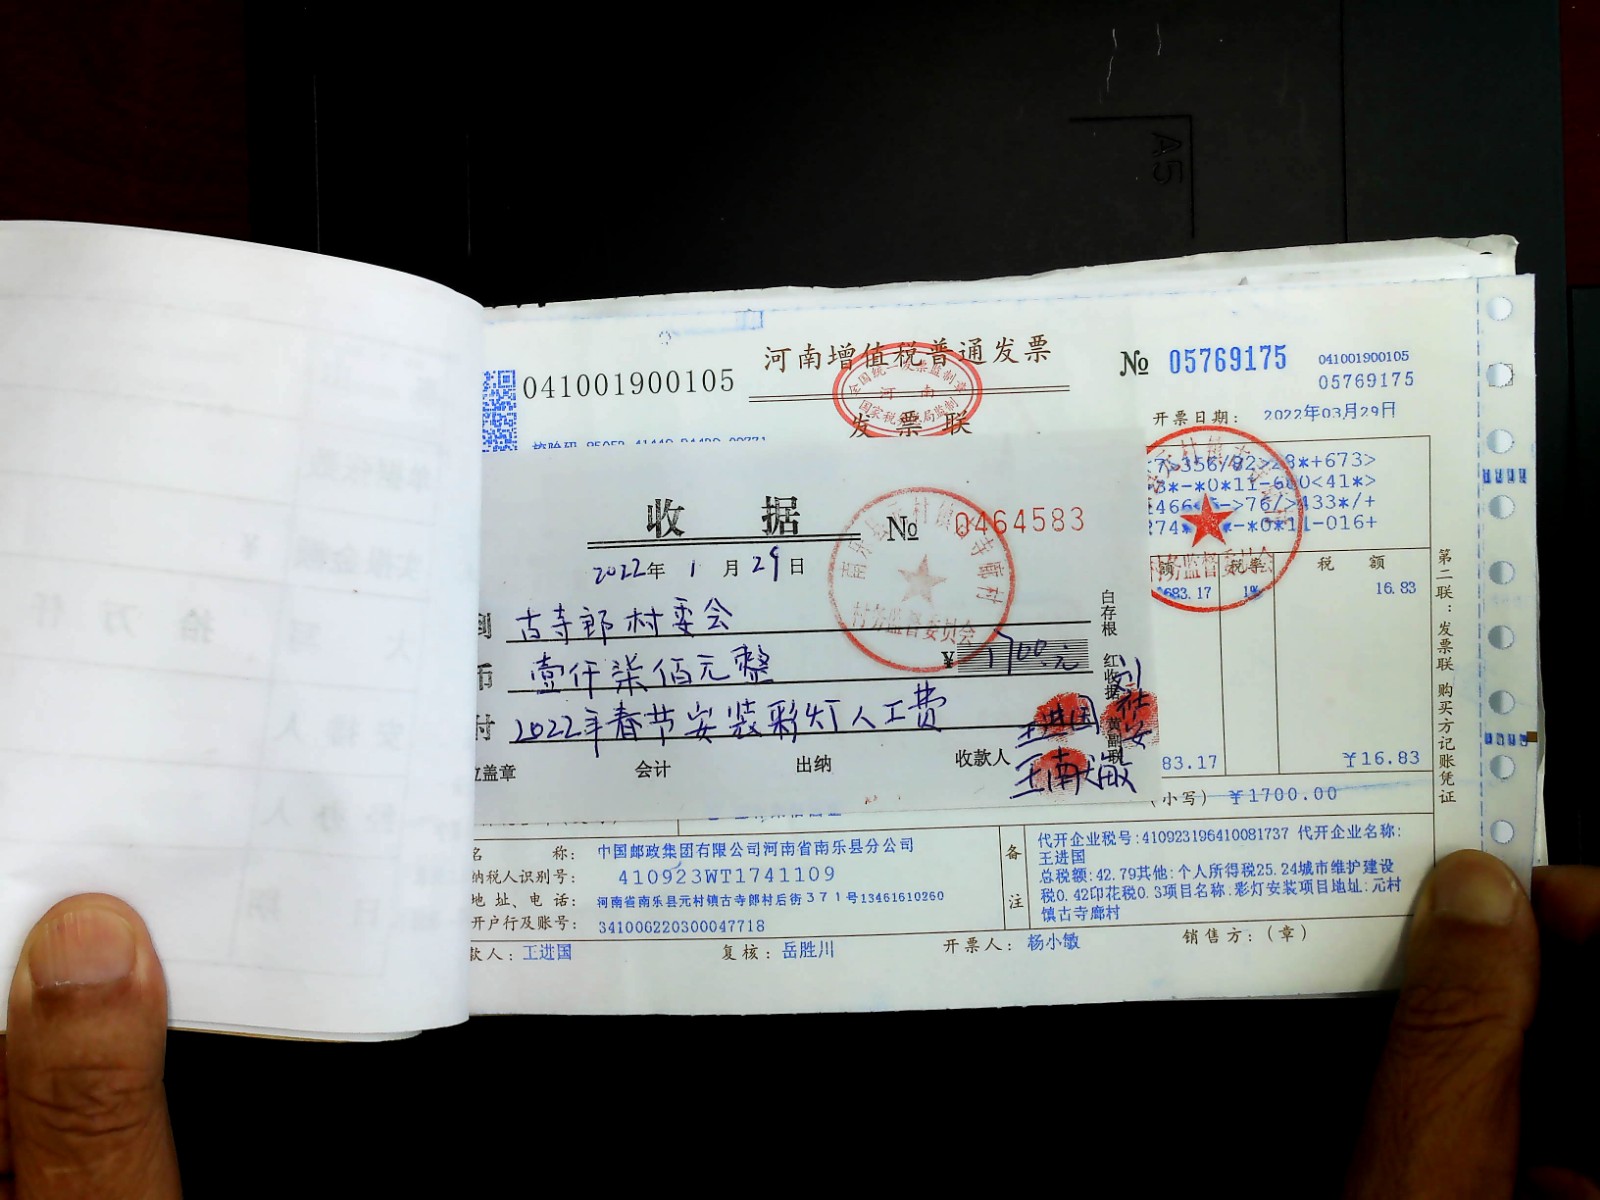 A5
河南增值税普通发票
发票联
041001900105
№ 05769175
041001900105
05769175
开票日期: 2022年03月29日
全国统一发票监制章
河南
国家税务总局监制
收据
№ 0464583
2022年 1 月 29 日
到 古寺郎村委会
币 壹仟柒佰元整
¥ 1700.元
付 2022年春节安装彩灯人工费
位盖章 会计 出纳 收款人
王进国
王南敏
白存根 红收据 黄副联
村务监督委员会
村务监督委员会
356/82>28*+673>
*-*0*11-6
0<41*>
->76/>433*/+
-*0*11-016+
额 税率 税 额
683.17 1% 16.83
83.17 ¥16.83
(小写) ¥1700.00
第二联:发票联 购买方记账凭证
名 称: 中国邮政集团有限公司河南省南乐县分公司
纳税人识别号: 410923WT1741109
地 址、电 话: 河南省南乐县元村镇古寺郎村后街371号13461610260
开户行及账号: 341006220300047718
备注
代开企业税号:410923196410081737 代开企业名称:
王进国
总税额:42.79其他:个人所得税25.24城市维护建设
税0.42印花税0.3项目名称:彩灯安装项目地址:元村
镇古寺廊村
款人: 王进国 复核: 岳胜川 开票人: 杨小敏 销售方:(章)